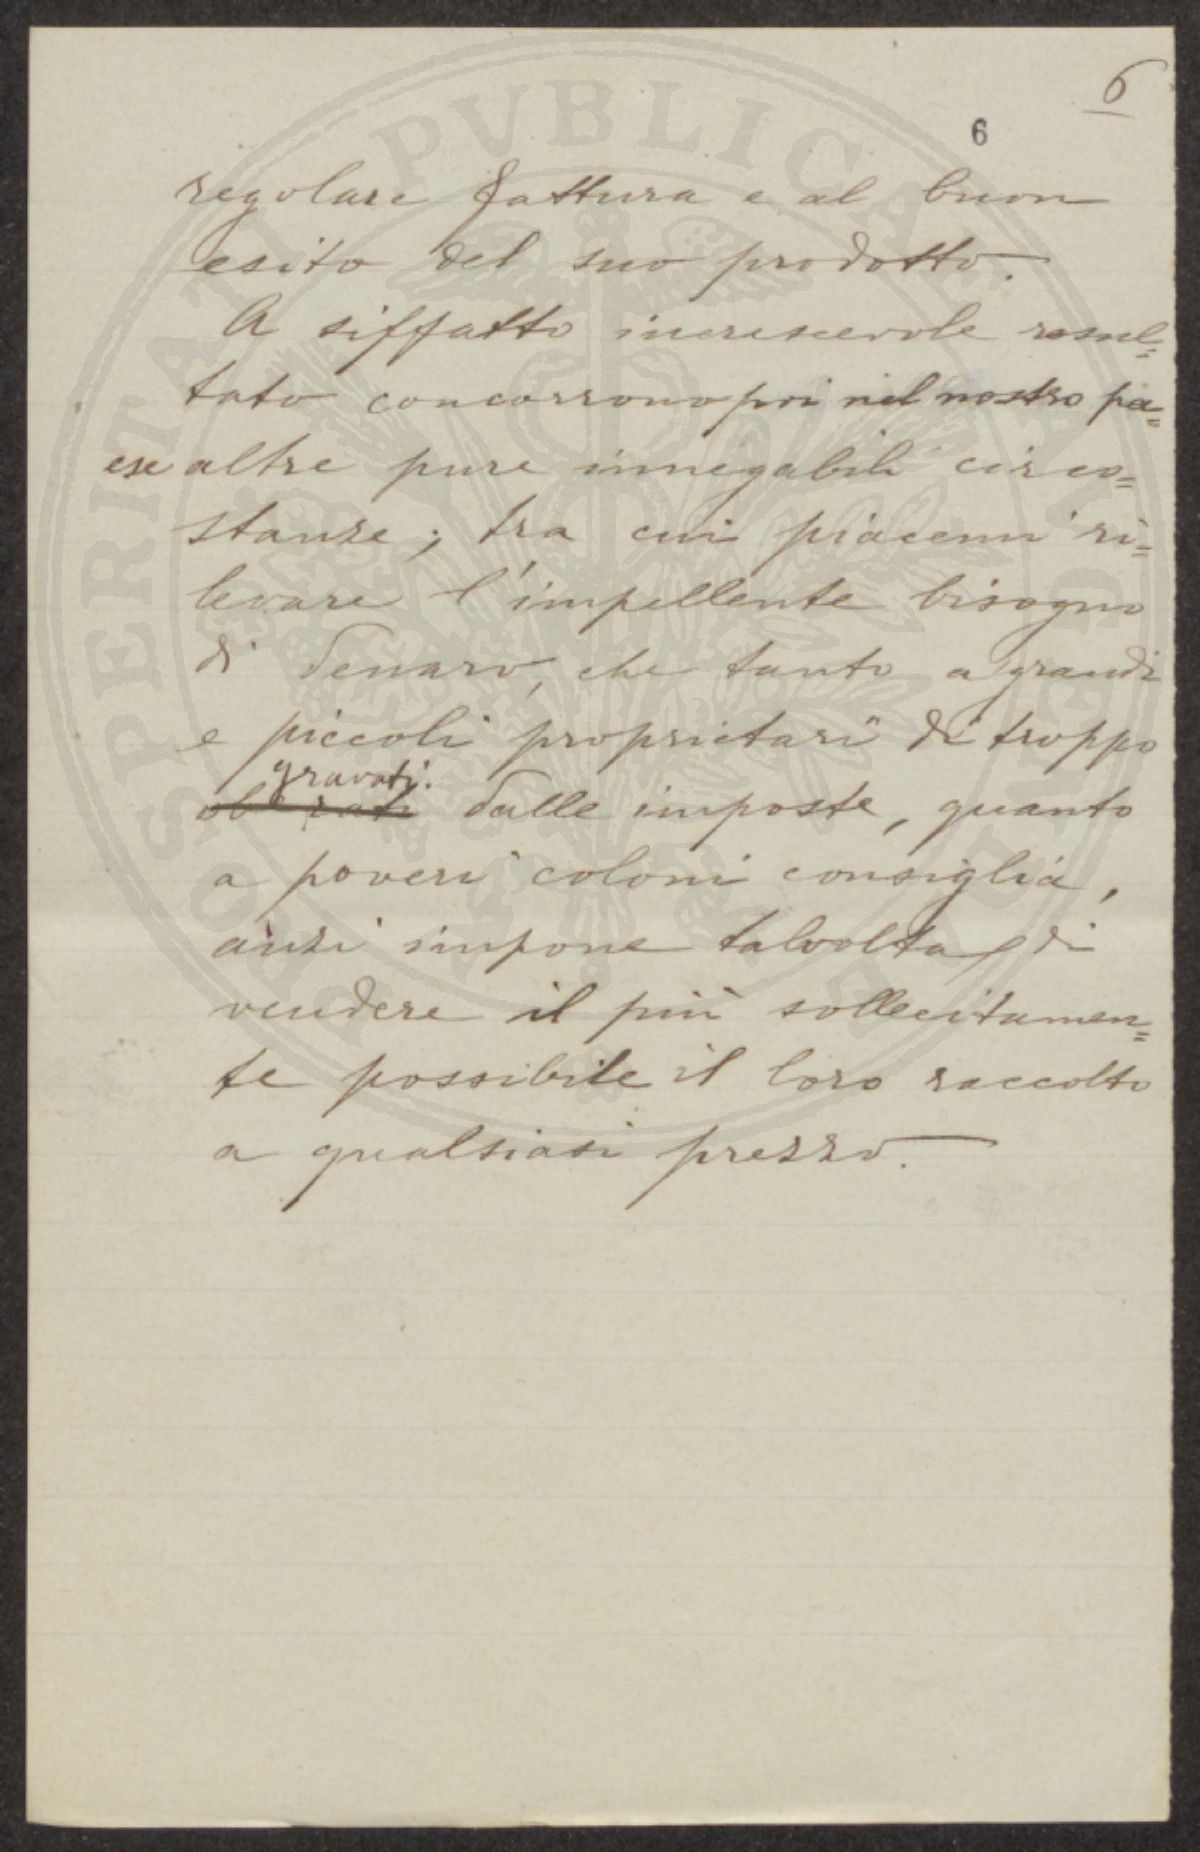 6
6
regolare fattura e al buon
esito del suo prodotto.
A siffatto increscevole resul=
tato concorrono poi nel nostro pa=
ese altre pure innegabili circo=
stanze; tra cui piacemi ri=
levare l'impellente bisogno
di denaro, che tanto a grandi
e piccoli proprietari di troppo
gravati
dalle imposte, quanto
a poveri coloni consiglia,
anzi impone talvolta, di
vendere il più sollecitamen=
te possibile il loro raccolto
a qualsiasi prezzo.
PROSPERITATI PVBLICAE